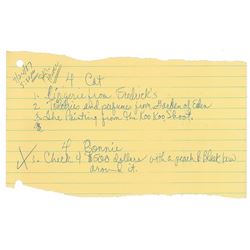 4 Cat
1. Lingerie from Fredrick's
2. Teddies and perfume from Garden of Eden
3. The Painting from the Koo Koo Shoot.
4 Bonnie
1. Check 4 $500 dollars with a peach & black bow
around it.